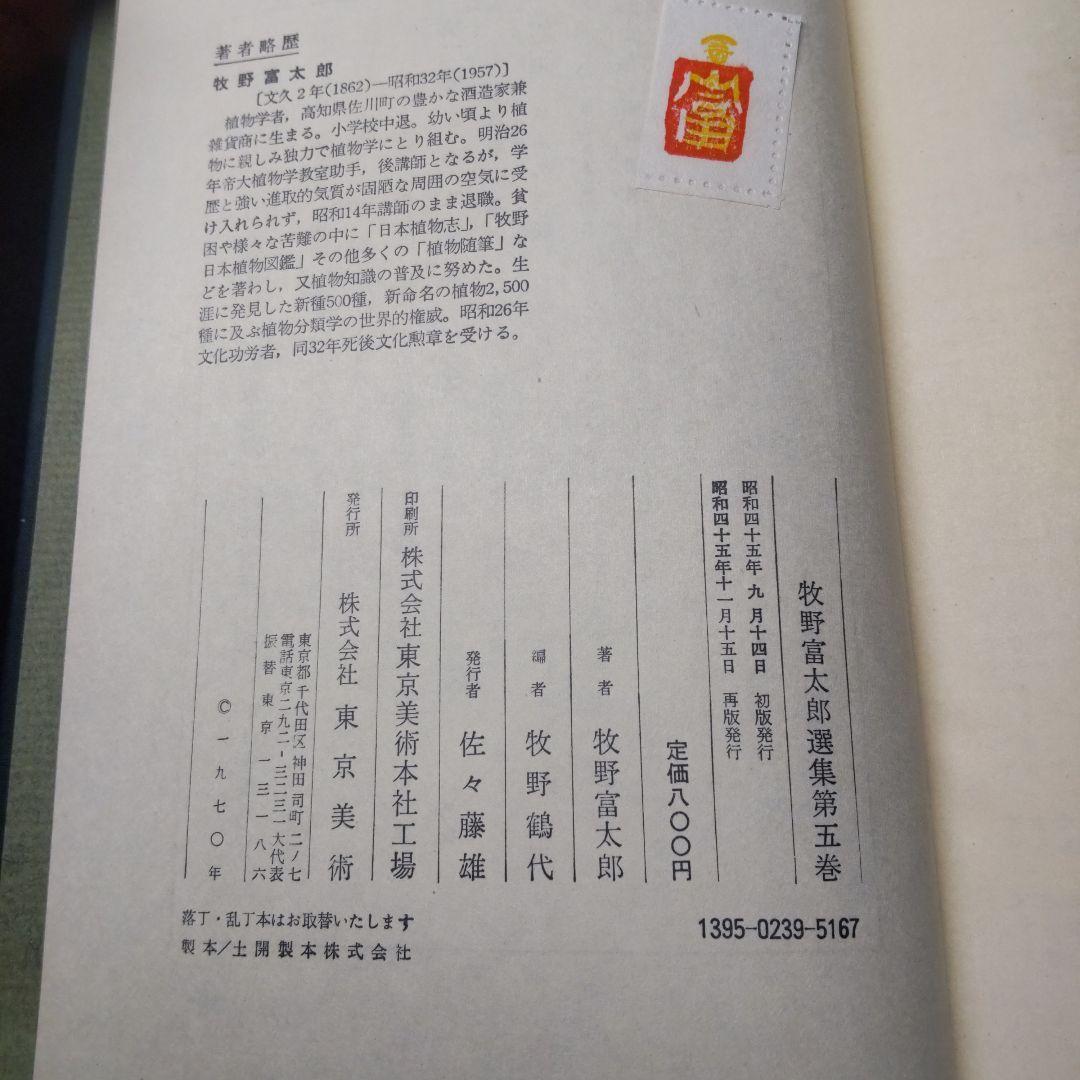 著者略歴
牧野富太郎
［文久2年(1862)―昭和32年(1957)］
植物学者，高知県佐川町の豊かな酒造家兼
雑貨商に生まる。小学校中退。幼い頃より植
物に親しみ独力で植物学にとり組む。明治26
年帝大植物学教室助手，後講師となるが，学
歴と強い進取的気質が固陋な周囲の空気に受
け入れられず，昭和14年講師のまま退職。貧
困や様々な苦難の中に「日本植物志」，「牧野
日本植物図鑑」その他多くの「植物随筆」な
どを著わし，又植物知識の普及に努めた。生
涯に発見した新種500種，新命名の植物2,500
種に及ぶ植物分類学の世界的権威。昭和26年
文化功労者，同32年死後文化勲章を受ける。
牧野富太郎選集第五巻
昭和四十五年 九 月十四日 初版発行
昭和四十五年十一月十五日 再版発行
定価八〇〇円
著者 牧野富太郎
編者 牧野鶴代
発行者 佐々藤雄
印刷所 株式会社東京美術本社工場
発行所 株式会社 東京美術
東京都千代田区神田司町二ノ七
電話東京二九二-三二三一大代表
振替東京一三一八六
©一九七〇年
落丁・乱丁本はお取替いたします
製本/土開製本株式会社
1395-0239-5167